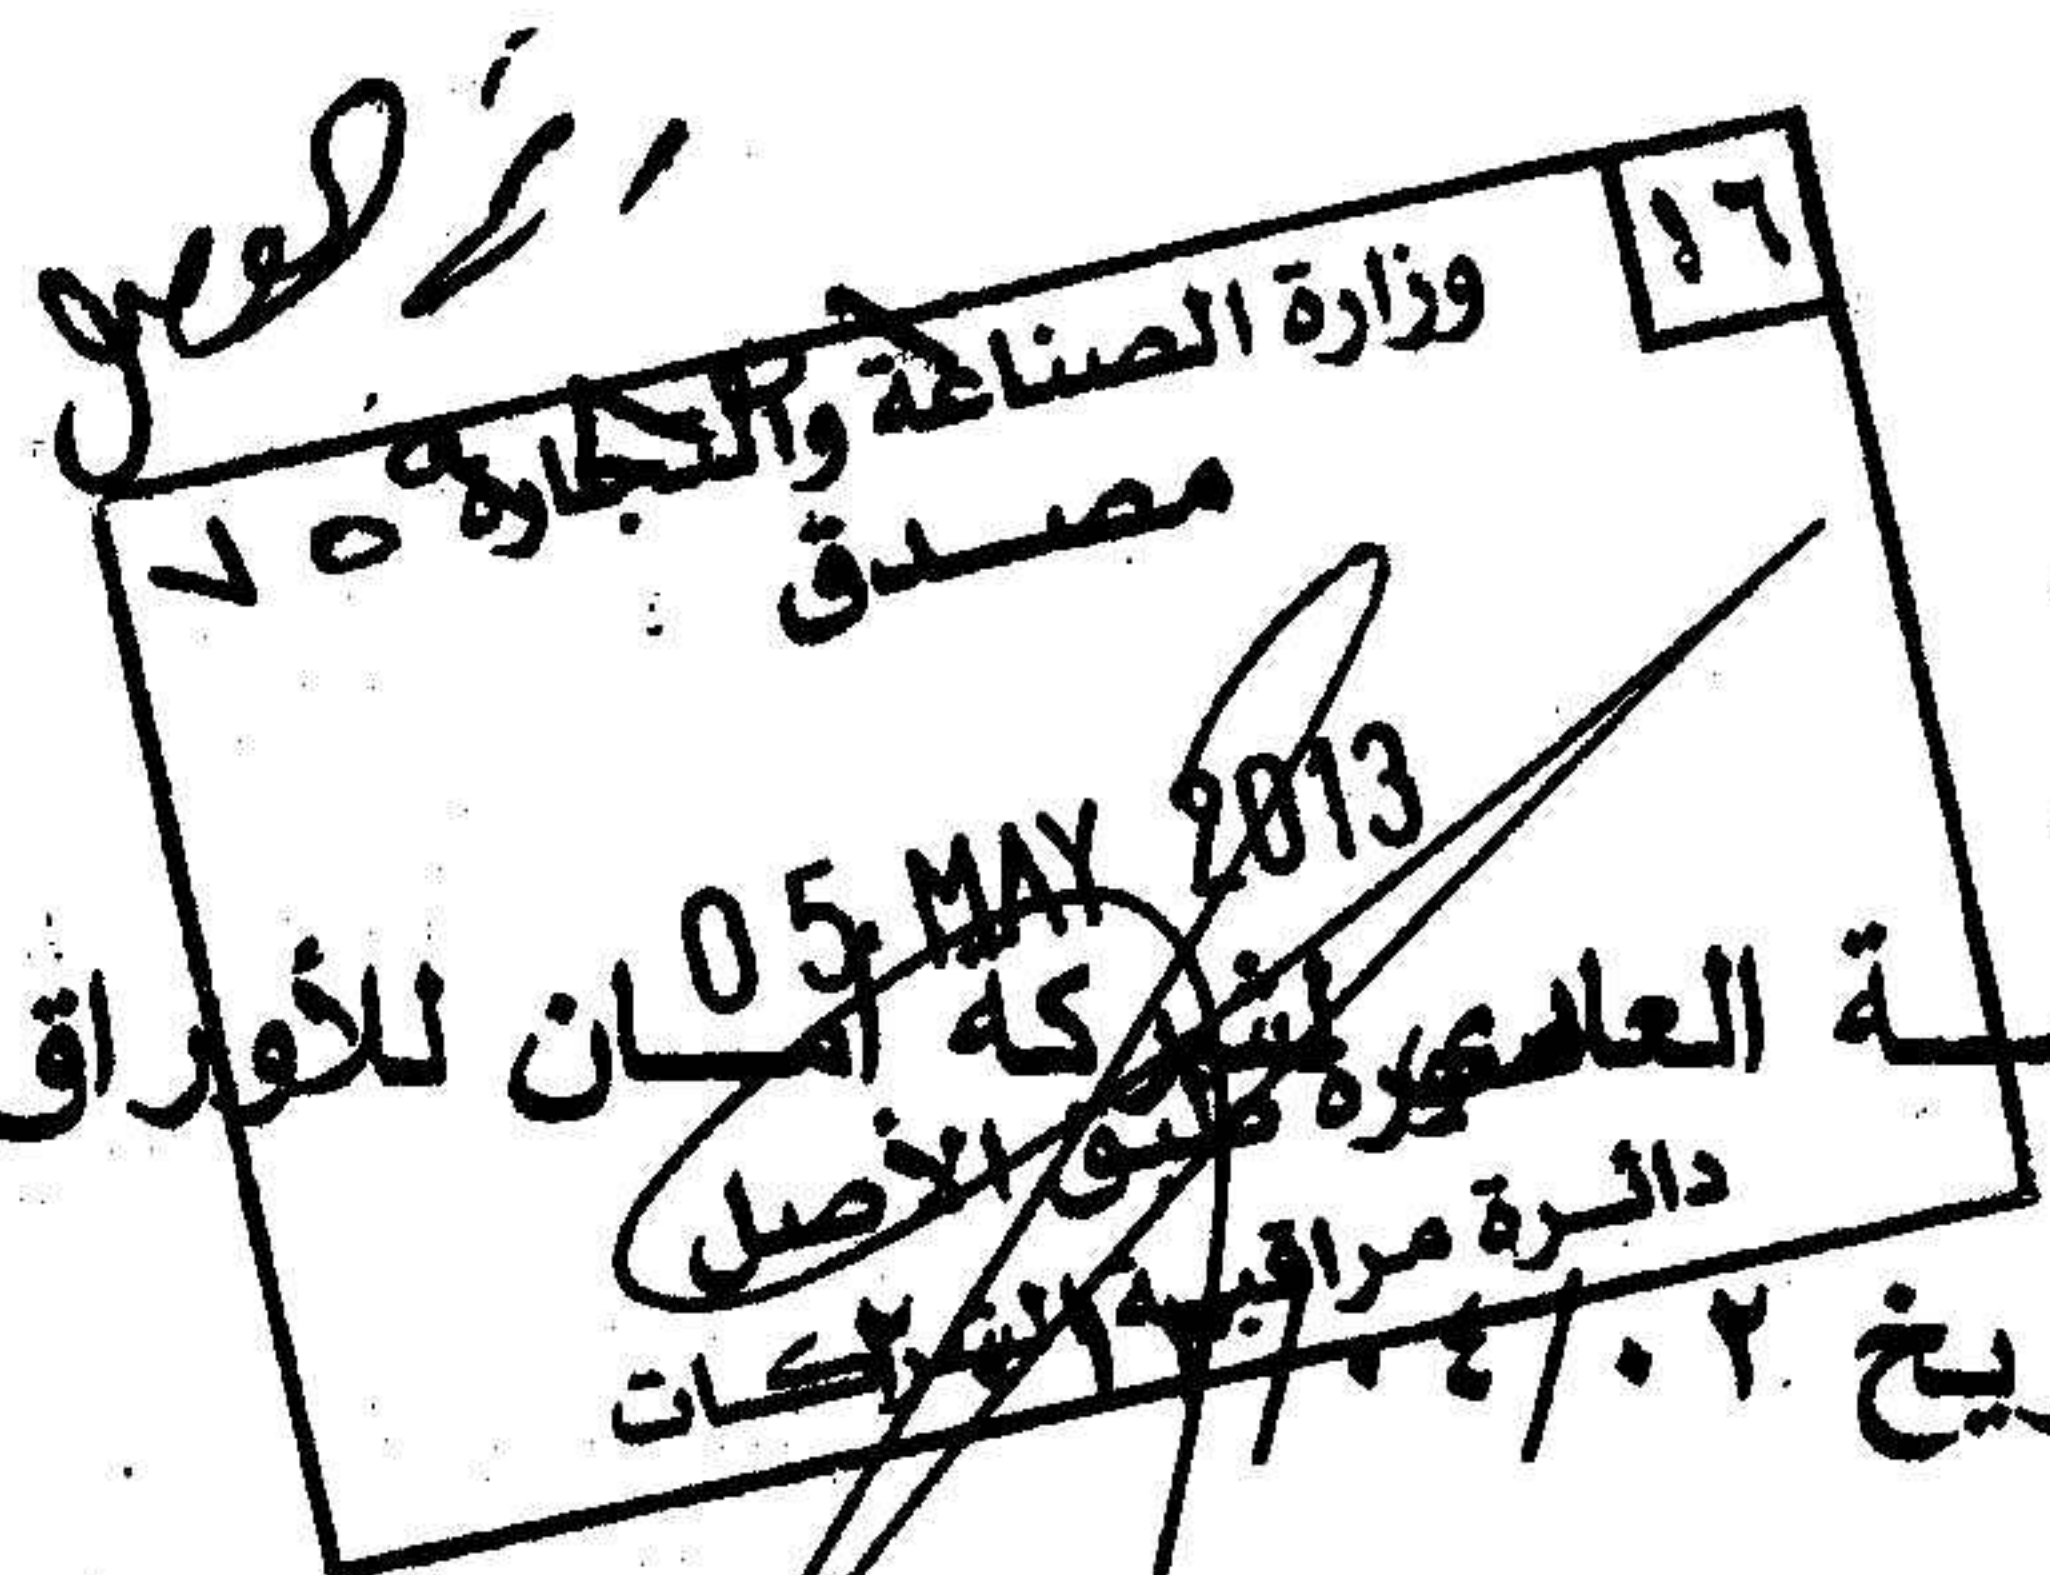 ١٦
وزارة الصناعة والتجارة
مصدق
05 MAY 2013
ـة العامة لشركة أمـــان للأوراق
صورة طبق الأصل
دائرة مراقبة الشركات
ريخ ٠٢/٠٤/